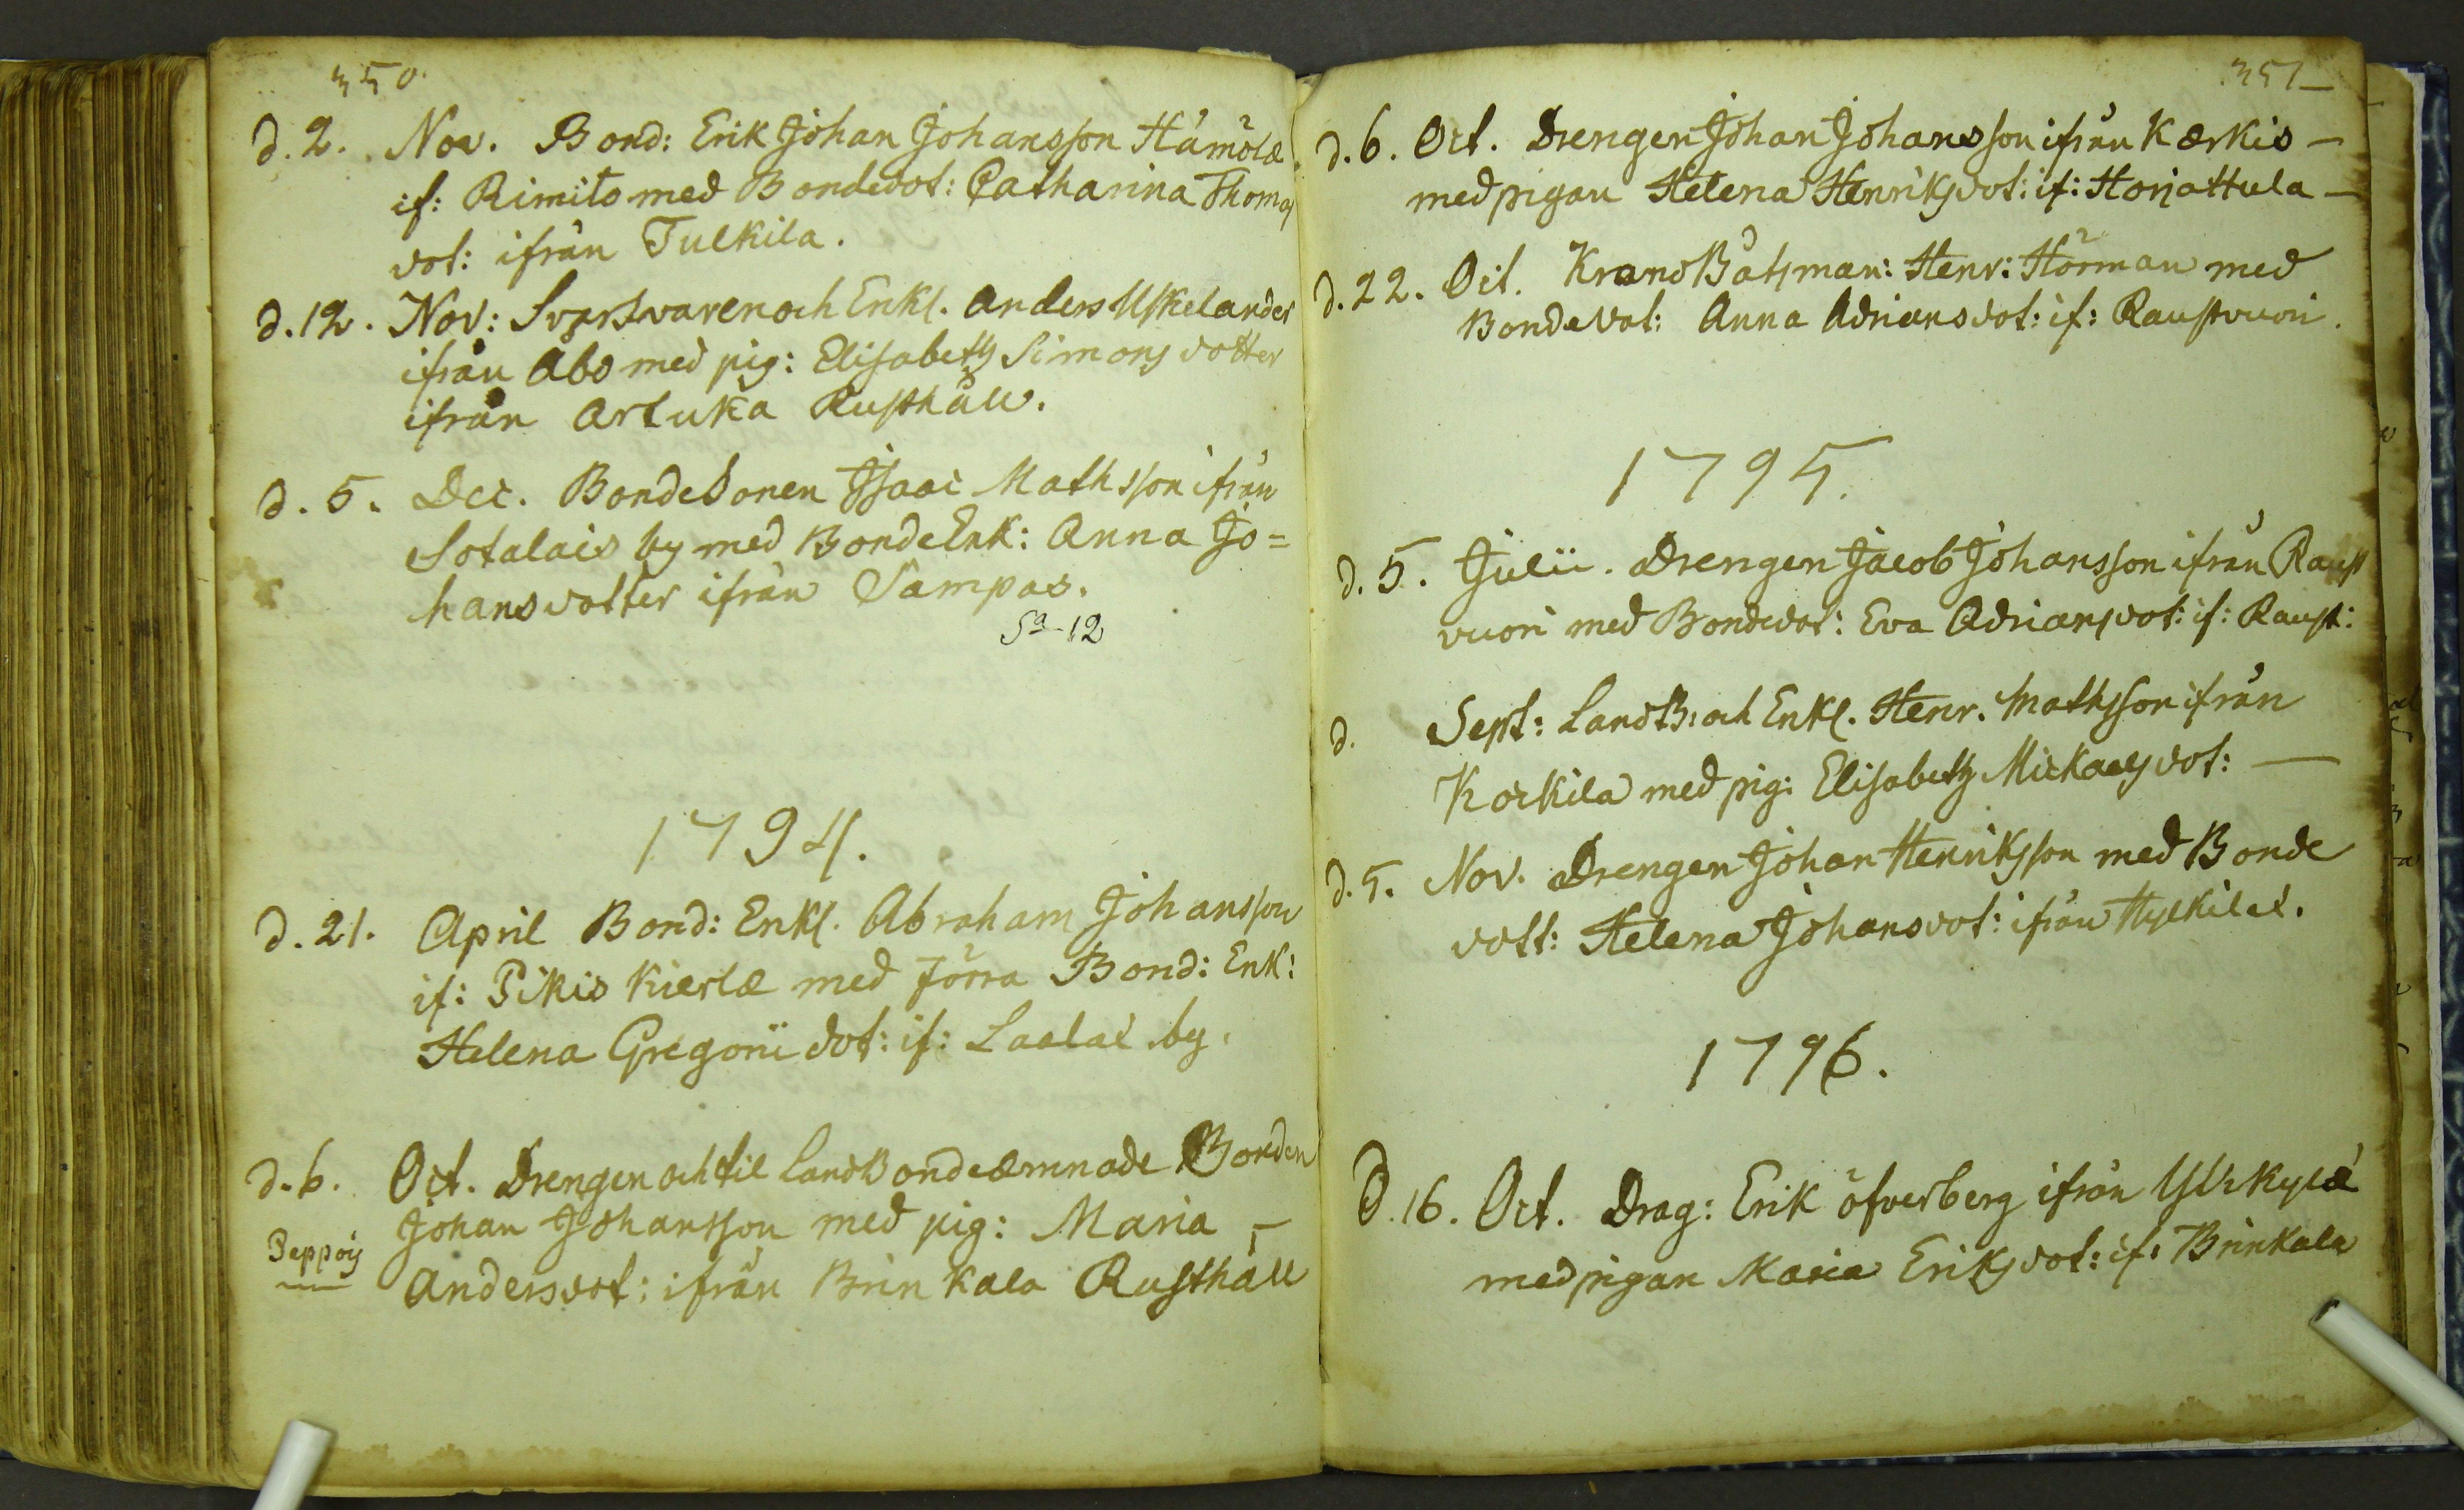 350.
d. 2. Nov. Bond: Erik Johan Johansson Hämölä
if: Rimito med Bondedot: Catharina Thomas
dot: ifrån Tulkila.
d. 12. Nov: Svarsvaren och Enkl. Anders Uskelander
ifrån Åbo med pig: Elisabeth Simons dotter
ifrån Artuka Rusthåll.
d. 5. Dec. BondeSonen Isaac Mathsson ifrån
Sotalais by med BondeEnk: Anna Jo=
hansdotter ifrån Sampas.
Sa 12
1794.
d. 21. April Bond: Enkl. Abraham Johansson
if: Pikis Kierlæ med förra Bond: Enk:
Helena Gregorii dot: if: Laalae by.
d. 6. Oct. Drengen och til LandBonde ämnade Bonden
Johan Johansson med pig: Maria –
Peppois
Andersdot: ifrån Brinkala Rusthåll
351
d. 6. Oct. Drengen Johan Johansson ifrån Kærkis –
med pigan Helena Henriksdot: if: Horjattula –
d. 22. Oct. Krono Båtsman: Henr: Hörman med
Bondedot: Anna Adriansdot: if: Raustvuori.
1795.
d. 5. Julii. Drengen Jacob Johansson ifrån Raust
vuori med Bondedot: Eva Adriansdot: if: Raust:
d. Sept: LandB: och Enkl. Henr. Mathsson ifrån
Korkila med pig: Elisabeth Mickaelsdot: –
d. 5. Nov. Drengen Johan Henriksson med Bonde
dott: Helena Johansdot: ifrån Hylkilä.
1796.
D. 16. Oct. Drag: Erik öfverberg ifrån Ylikylä
med pigan Maria Eriksdot: if: Brinkala